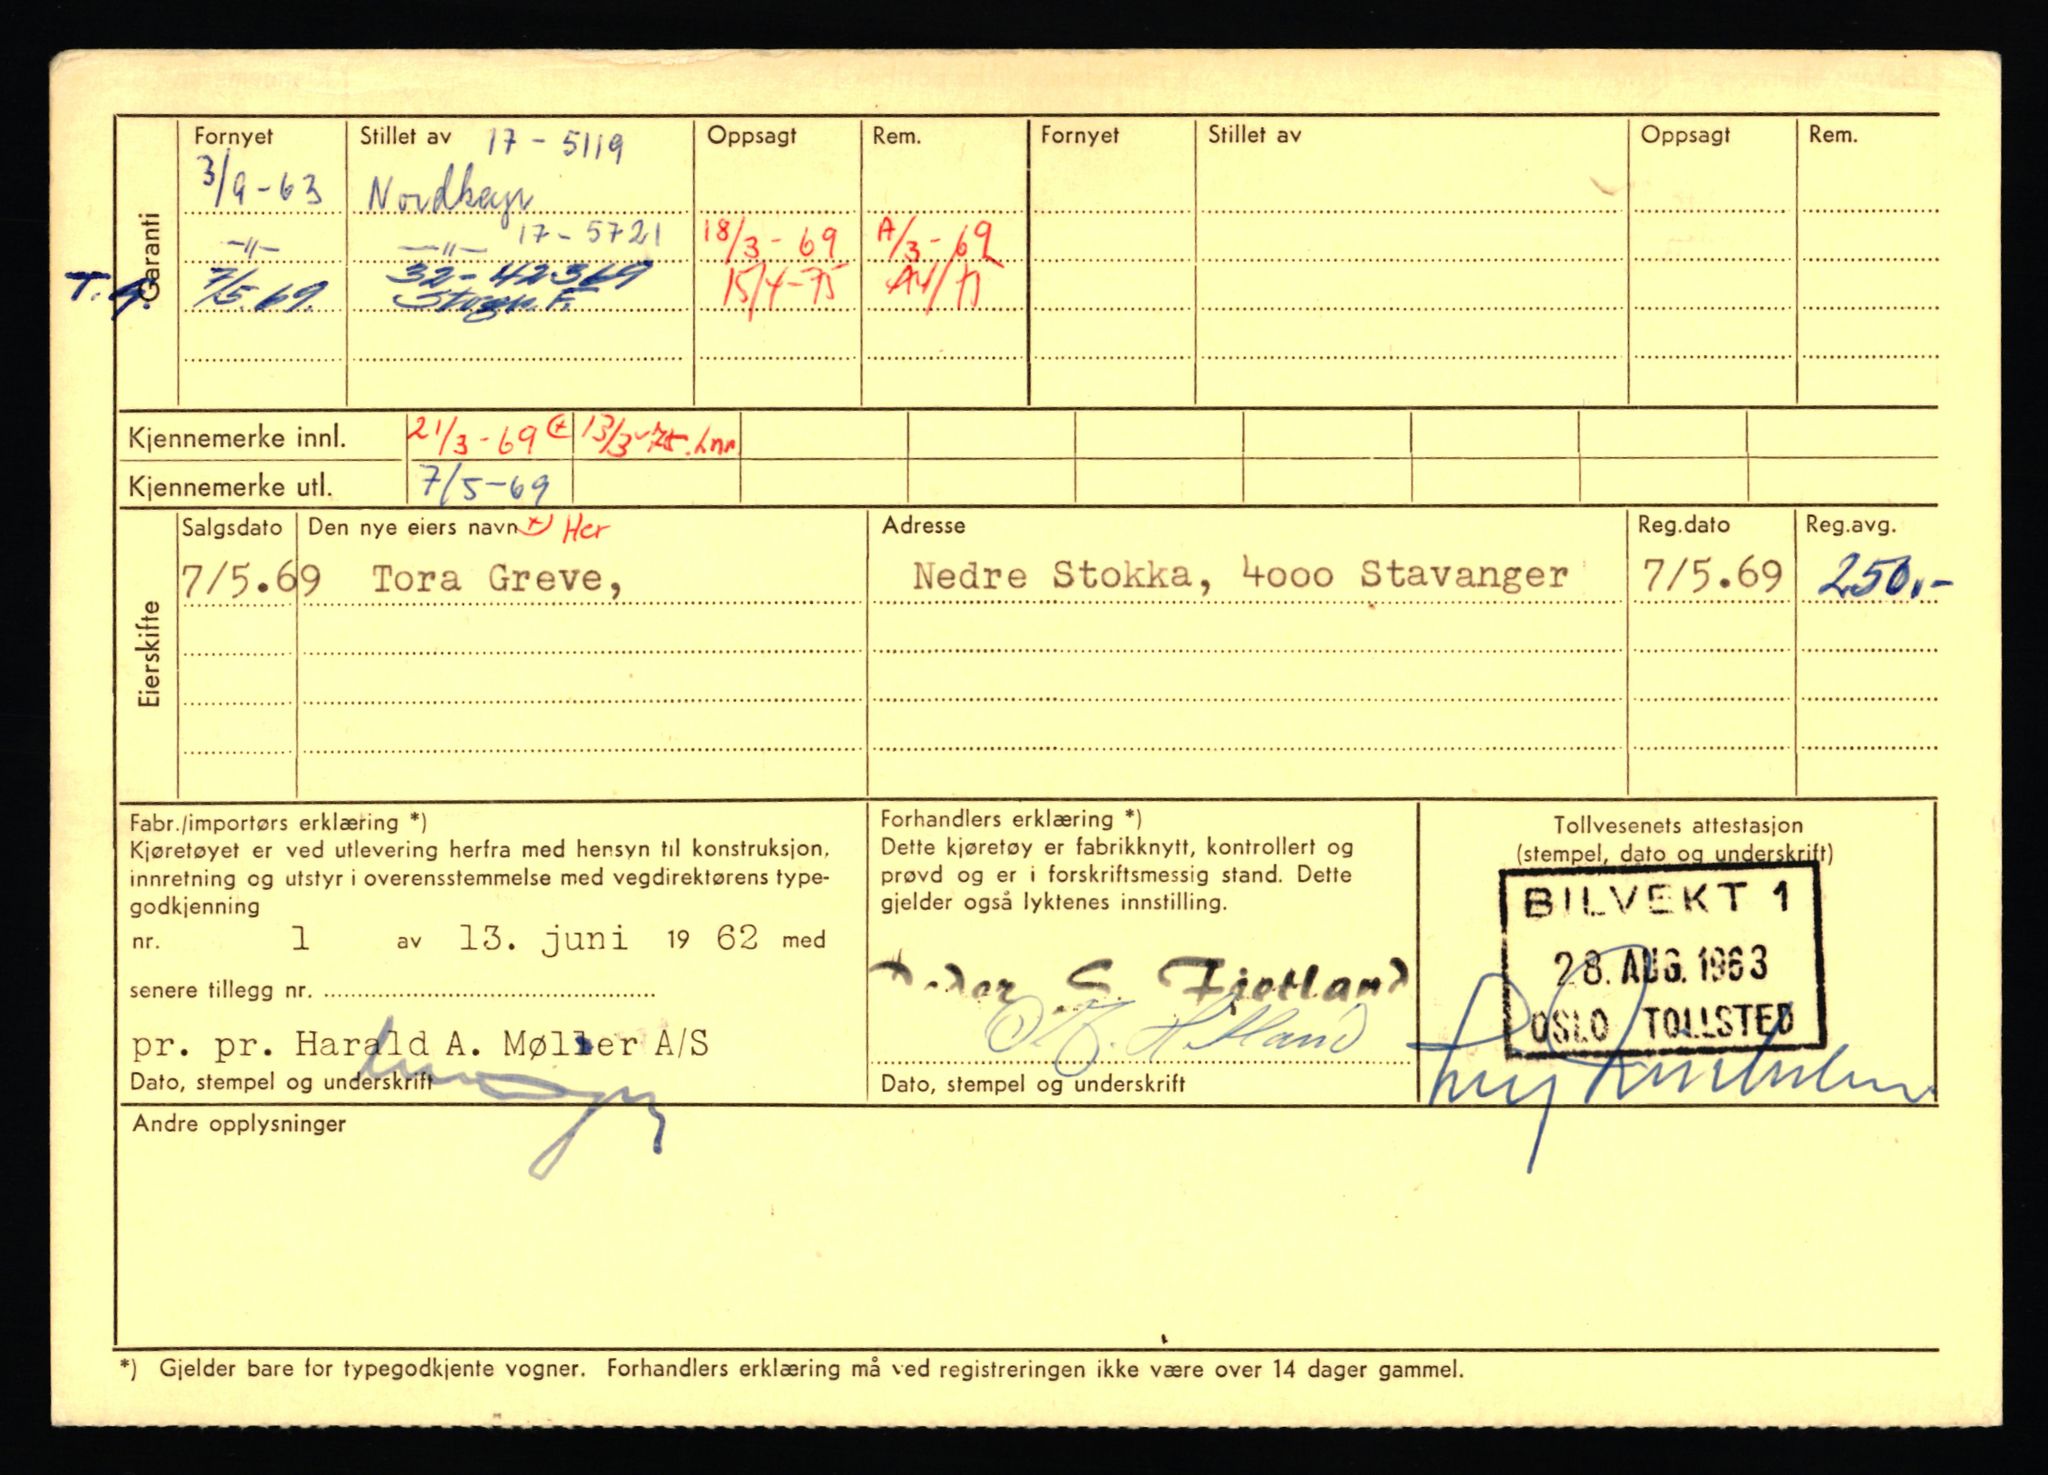 Garanti
Fornyet Stillet av 17 - 5119 Oppsagt Rem. Fornyet Stillet av Oppsagt Rem.
3/9-63 Nordkeyn
—"— —"— 17-5721 18/3-69 A/3-69
T.g. 7/5.69. 32-42369 15/4-75
Kjennemerke innl. 21/3-69 13/3-75. Lnr.
Kjennemerke utl. 7/5-69
Eierskifte
Salgsdato Den nye eiers navn x) Her Adresse Reg.dato Reg.avg.
7/5.69 Tora Greve, Nedre Stokka, 4000 Stavanger 7/5.69 250,-
Fabr./importørs erklæring *)
Kjøretøyet er ved utlevering herfra med hensyn til konstruksjon,
innretning og utstyr i overensstemmelse med vegdirektørens type-
godkjenning
nr. 1 av 13. juni 19 62 med
senere tillegg nr.
pr. pr. Harald A. Møller A/S
Dato, stempel og underskrift
Forhandlers erklæring *)
Dette kjøretøy er fabrikknytt, kontrollert og
prøvd og er i forskriftsmessig stand. Dette
gjelder også lyktenes innstilling.
Peder S. Fjetland
Dato, stempel og underskrift
Tollvesenets attestasjon
(stempel, dato og underskrift)
BILVEKT 1
28. AUG. 1963
OSLO TOLLSTED
Andre opplysninger
*) Gjelder bare for typegodkjente vogner. Forhandlers erklæring må ved registreringen ikke være over 14 dager gammel.